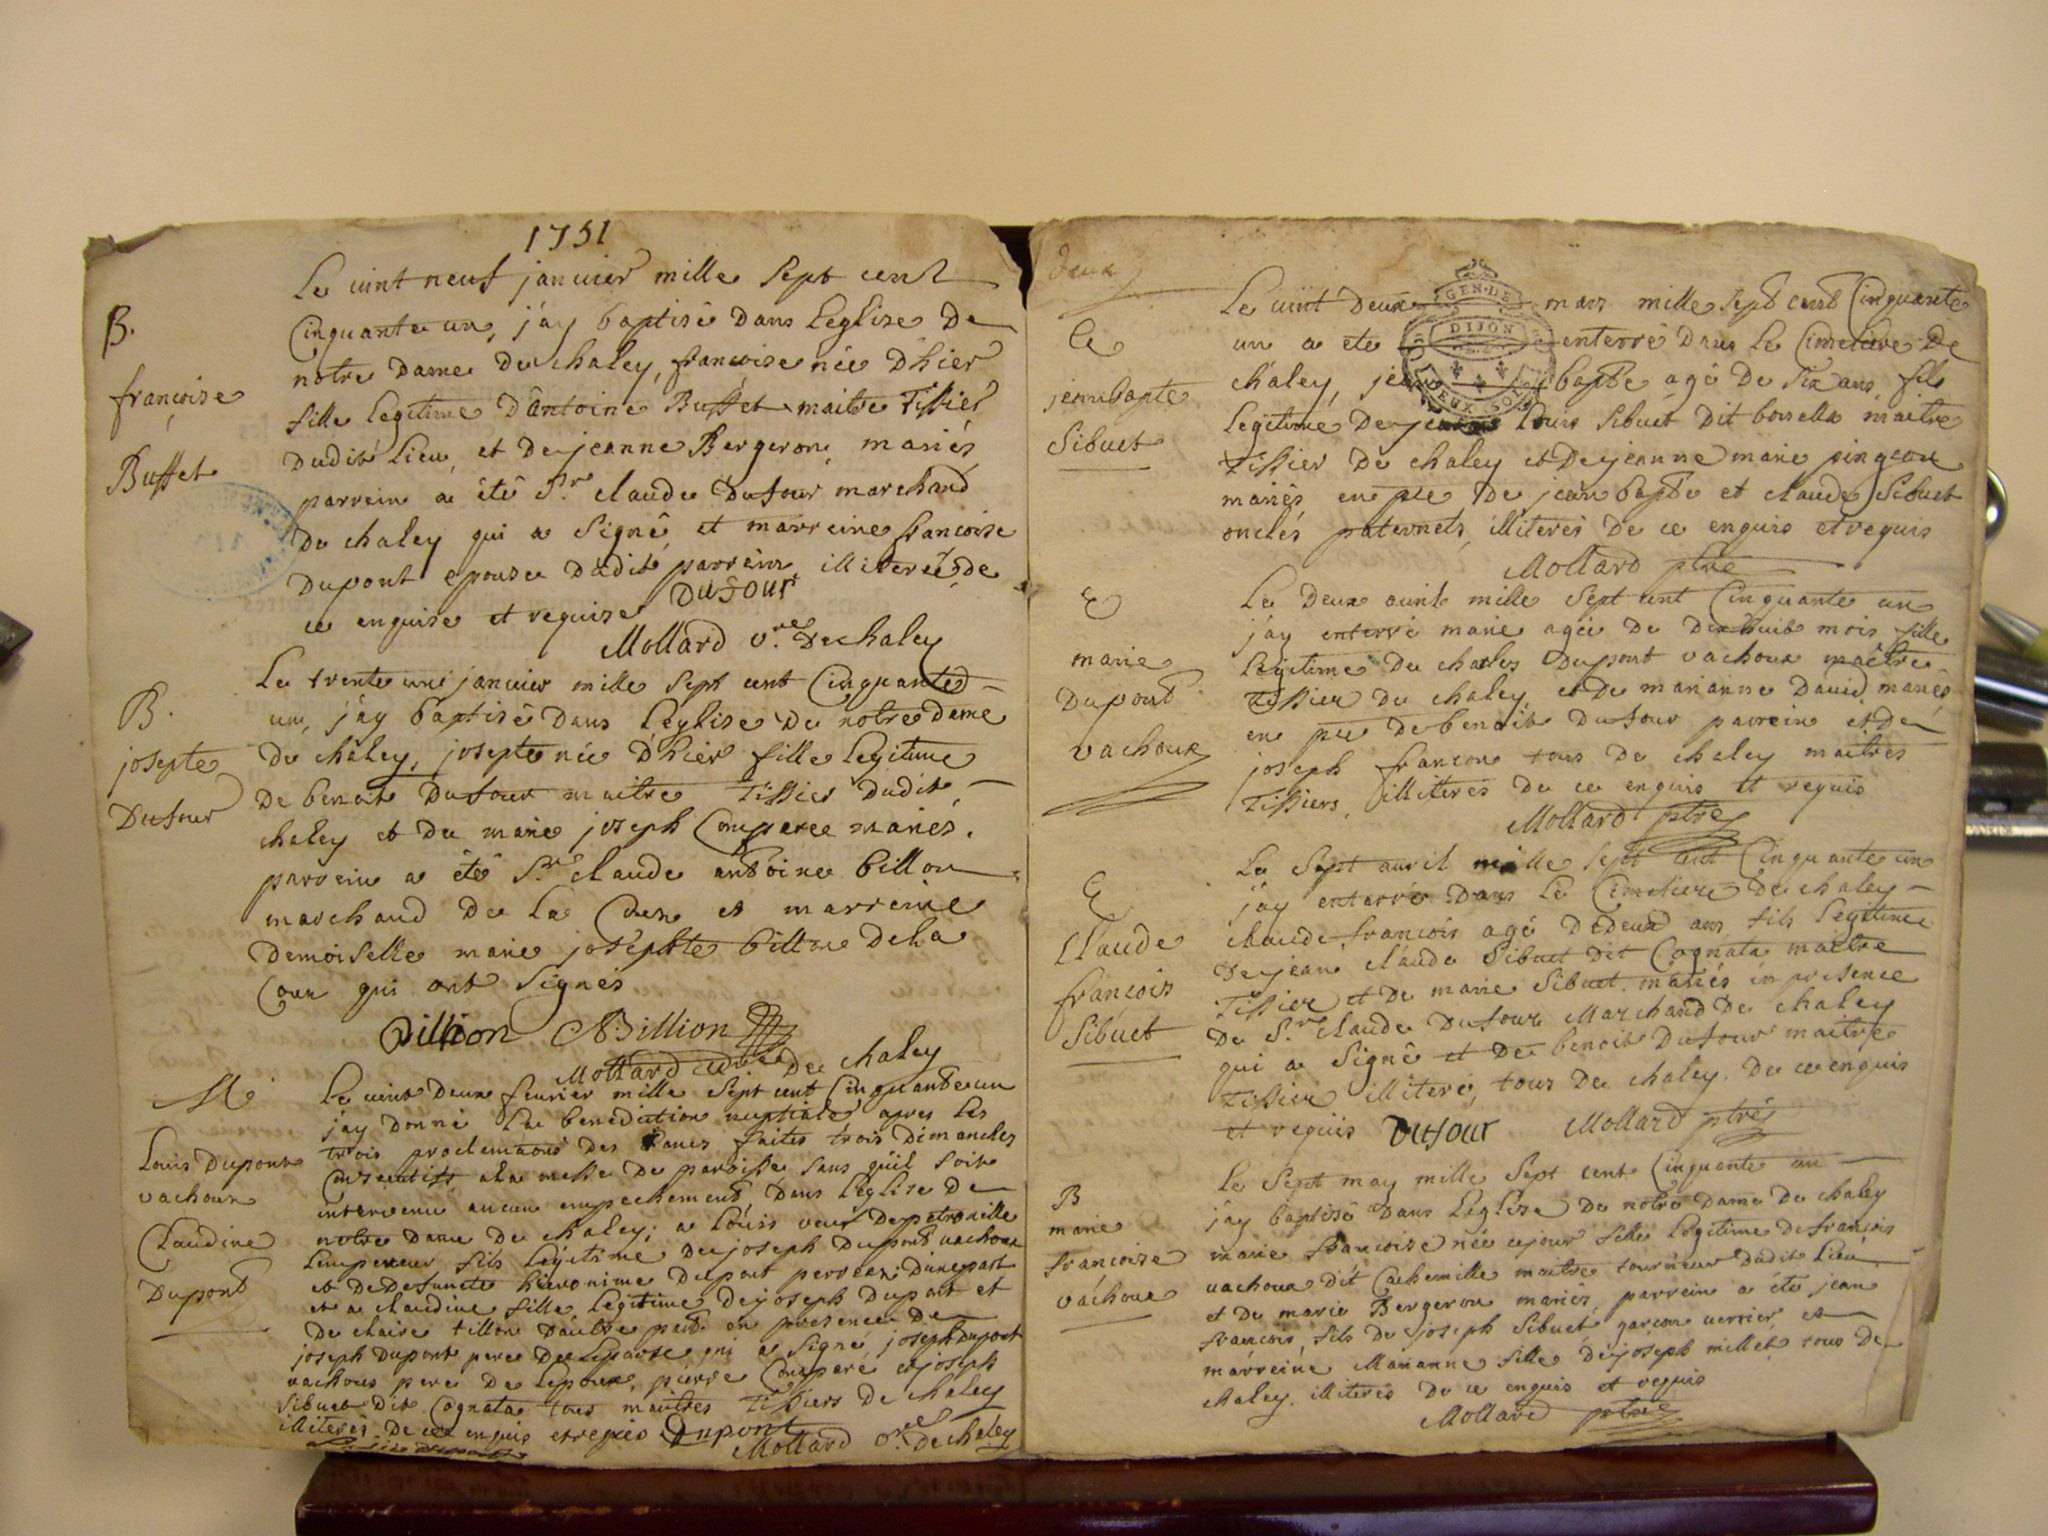 1751
B.
françoise
Buffet
Le vint neuf janvier mille sept cent
Cinquante un, j'ay baptisé dans l'eglise de
notre dame de chaley, françoise née d'hier
fille legitime d'antoine Buffet maitre Tissier
dudit lieu, et de jeanne Bergeron, mariés
parrein a été Sr. claude Dufour marchand
de chaley qui a signé, et marreine francoise
Dupont epouse dudit parrein, illiterée, de
ce enquise et requise Dufour
Mollard v.re De chaley
B.
josepte
Dufour
Le trente un janvier mille sept cent Cinquante
un, j'ay baptisé dans l'eglise de notre dame
de chaley, josepte née d'hier fille legitime
de benoit Dufour maitre Tissier dudit
chaley et de marie joseph Comperee mariés.
parrein a été Sr. claude antoine billon
marchand de La Cour et marreine
demoiselle marie josephte billion de La
Cour qui ont signés
Billion ABillion
Mollard curé De chaley
M
Louis Dupont
vachoux
Claudine
Dupont
Le vint deux fevrier mille sept cent Cinquante un
j'ay donné la benediction nuptiale apres les
trois proclamaons des bancs faites trois dimanches
Consecutifs a la messe de paroisse sans qu'il soit
intervenu aucun empechement, dans l'eglise de
notre dame de chaley; a Louis veuf de petronille
Lempereur fils legitime de joseph Dupont vachoux
et de defuncte hieronime Dupont perrear d'une part
et a claudine fille legitime de joseph Dupont et
de claire tillon d'autre part en presence de
joseph Dupont pere de L'epouse qui a signé, joseph Dupont
vachoux pere de l'epoux, pierre Comparé et joseph
Sibuet dit Cognata tous maitres Tissiers de chaley
illiterés de ce enquis et requis Dupont
Mollard v.re De chaley
deux
E
jean bapte
Sibuet
Le vint deux mars mille sept cent Cinquante
un a eté enterré dans le Cimetiere de
chaley, jean bapte agé de six ans, fils
legitime de Louis Sibuet dit maitre
Tissier de chaley et de jeanne marie pingeon
mariés, en pce de jean bapte et claude Sibuet
oncles paternels, illiterés de ce enquis et requis
Mollard ptre
E
marie
Dupont
vachoux
Le deux avril mille sept cent Cinquante un
j'ay enterré marie agée de dix huit mois, fille
legitime de charles Dupont vachoux maitre
Tissier de chaley et de marianne David mariés,
en pce de benoit Dufour parrein et de
joseph francon tous de chaley maitres
Tissiers, illiterés de ce enquis et requis
Mollard ptre
E
Claude
françois
Sibuet
Le Sept avril mille sept cent Cinquante un
j'ay enterré dans le Cimetiere de chaley
claude francois agé de deux ans, fils legitime
de jean claude Sibuet dit Cognata maitre
Tissier et de marie Sibuet mariés in presence
de Sr. claude Dufour Marchand de chaley
qui a signé et de benoit Dufour maitre
Tissier illiteré, tous de chaley. de ce enquis
et requis Dufour Mollard ptre
B
marie
françoise
vachoux
Le Sept may mille sept cent Cinquante un
j'ay baptisé dans l'eglise de notre dame de chaley
marie francoise née ce jour fille legitime de francois
vachoux dit Cachemille maitre tourneur dudit lieu
et de marie Bergeron mariés, parrein a été jean
francois, fils de joseph Sibuet garcon verrier, et
marreine Marianne fille de joseph millet tous de
chaley. illiterés de ce enquis et requis
Mollard ptre
GEN·DE
DIJON
DEUX SOLS